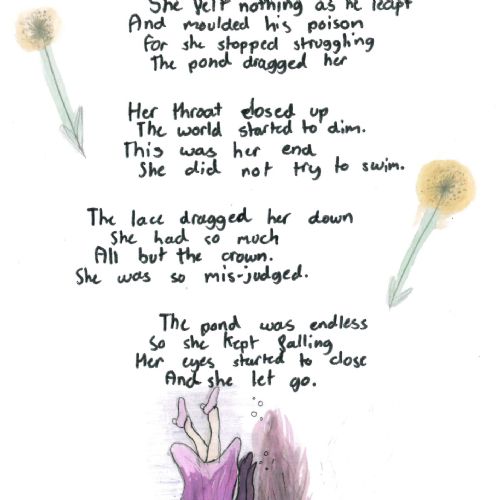 She felt nothing as he leapt
And moulded his poison
For she stopped struggling
The pond dragged her
Her throat closed up
The world started to dim.
This was her end
She did not try to swim.
The lace dragged her down
She had so much
All but the crown.
She was so mis-judged.
The pond was endless
So she kept falling
Her eyes started to close
And she let go.